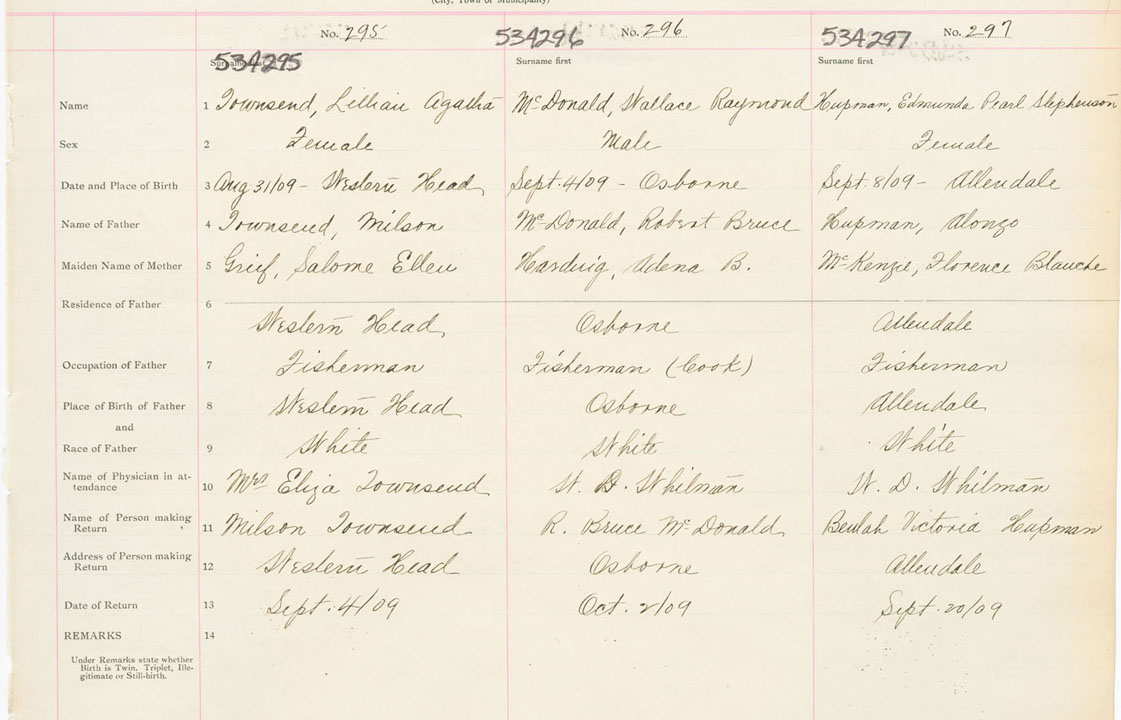 (City, Town or Municipality)
No. 295 No. 296 No. 297
534295 534296 534297
Surname first Surname first Surname first
Name 1 Townsend, Lillian Agatha McDonald, Wallace Raymond Hupman, Edmunda Pearl Stephenson
Sex 2 Female Male Female
Date and Place of Birth 3 Aug 31/09 - Western Head Sept. 4/09 - Osborne Sept. 8/09 - Allendale
Name of Father 4 Townsend, Milson McDonald, Robert Bruce Hupman, Alonzo
Maiden Name of Mother 5 Grief, Salome Ellen Hardwig, Adena B. McKenzie, Florence Blanche
Residence of Father 6
Western Head, Osborne Allendale
Occupation of Father 7 Fisherman Fisherman (Cook) Fisherman
Place of Birth of Father 8 Western Head Osborne Allendale
and
Race of Father 9 White White White
Name of Physician in at-
tendance 10 Mrs Eliza Townsend W. D. Whilman W. D. Whilman
Name of Person making
Return 11 Milson Townsend R. Bruce McDonald Beulah Victoria Hupman
Address of Person making
Return 12 Western Head Osborne Allendale
Date of Return 13 Sept. 4/09 Oct. 2/09 Sept. 20/09
REMARKS 14
Under Remarks state whether
Birth is Twin, Triplet, Ille-
gitimate or Still-birth.